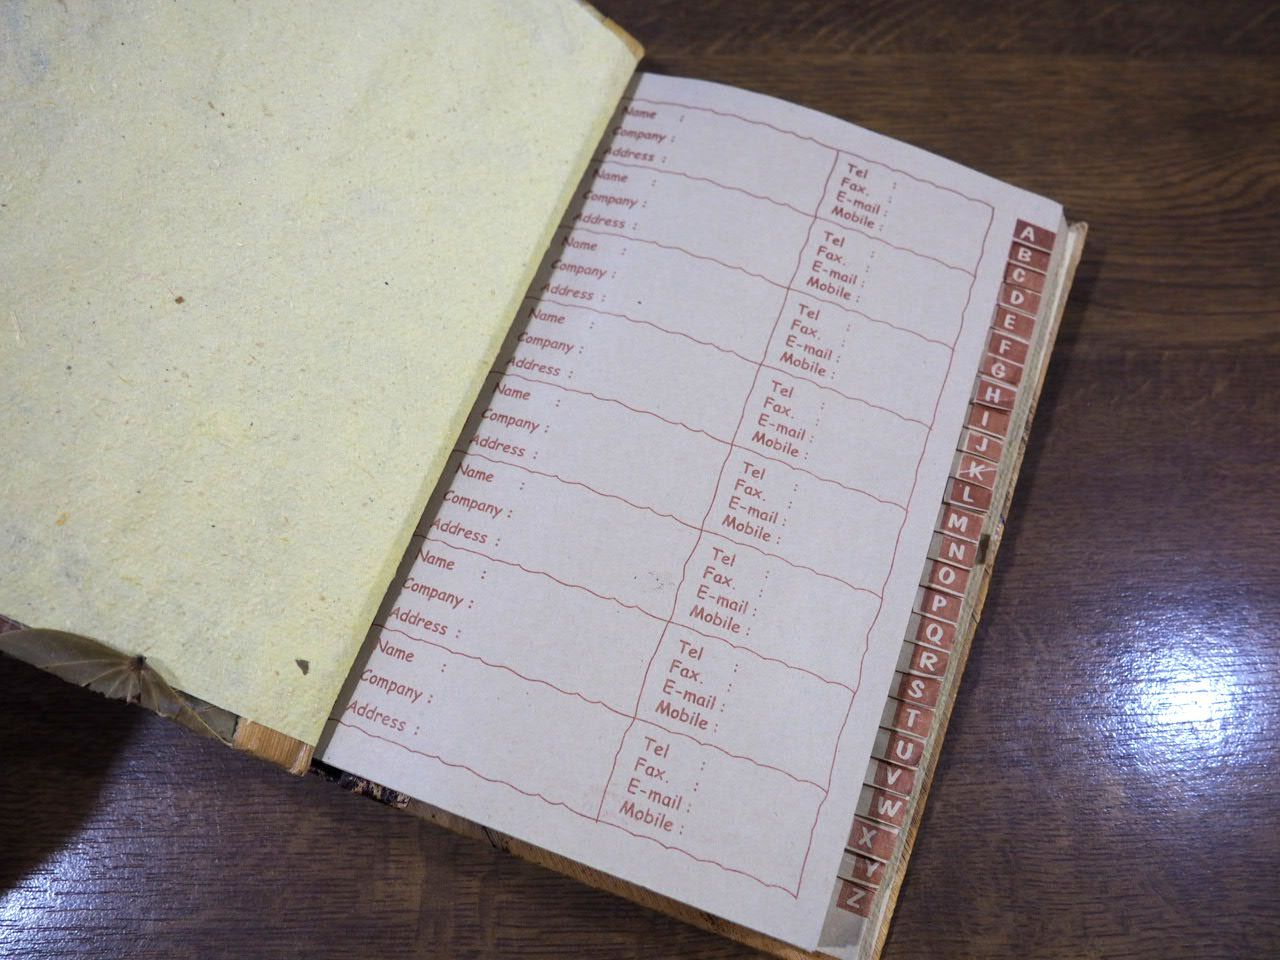 Name :
Company :
Address :
Tel :
Fax. :
E-mail :
Mobile :
Name :
Company :
Address :
Tel :
Fax. :
E-mail :
Mobile :
Name :
Company :
Address :
Tel :
Fax. :
E-mail :
Mobile :
Name :
Company :
Address :
Tel :
Fax. :
E-mail :
Mobile :
Name :
Company :
Address :
Tel :
Fax. :
E-mail :
Mobile :
Name :
Company :
Address :
Tel :
Fax. :
E-mail :
Mobile :
Name :
Company :
Address :
Tel :
Fax. :
E-mail :
Mobile :
Name :
Company :
Address :
Tel :
Fax. :
E-mail :
Mobile :
A
B
C
D
E
F
G
H
I
J
K
L
M
N
O
P
Q
R
S
T
U
V
W
X
Y
Z